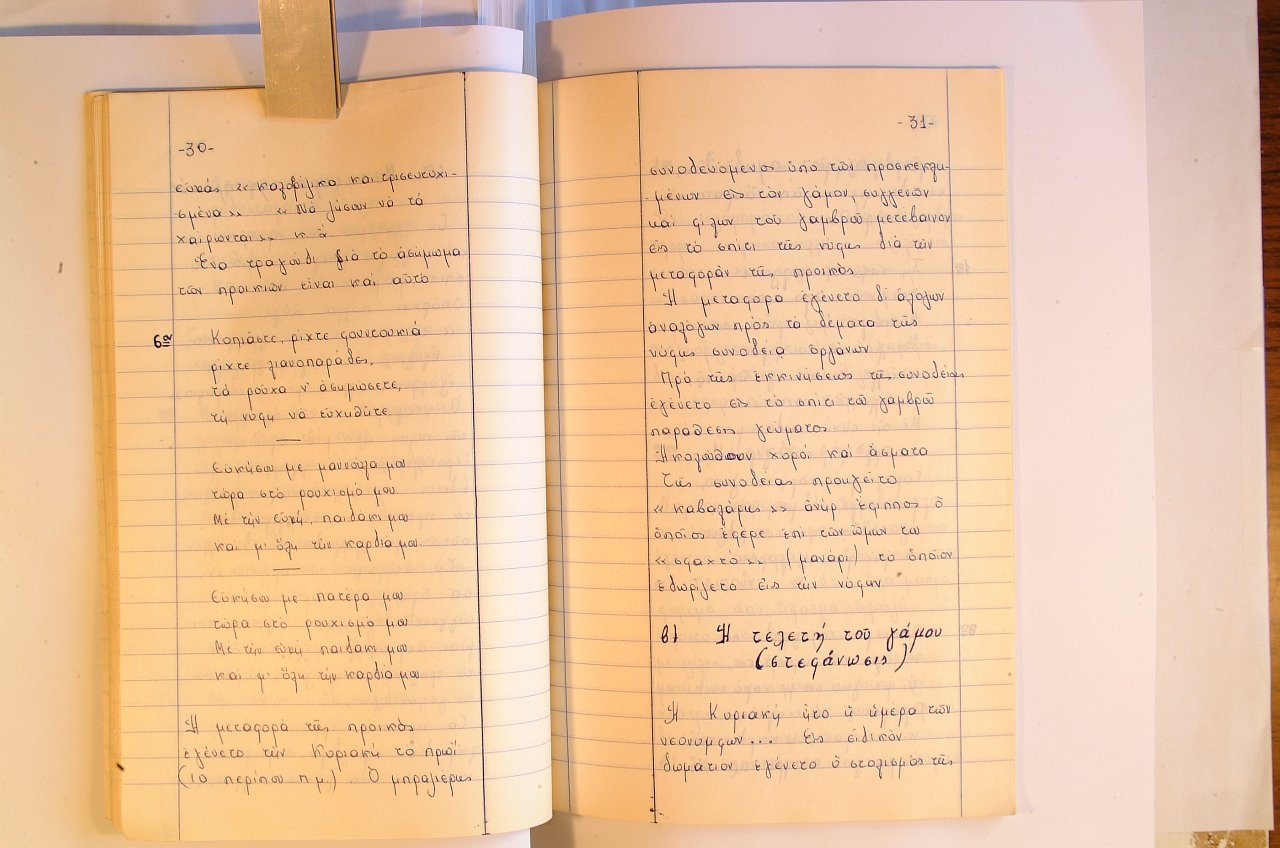 -30-
εὐχάς « καλοφίλικα και τρισευτυχι-
σμένα » « Νά ζήσουν νά τά
χαίρωνται » κ. ἄ.
Ἕνα τραγοῦδι γιά τό ἀσήμωμα
τῶν προικιῶν εἶναι καί αὐτό
6ον
Κοπιάστε, ρίχτε φουντουκιά
ρίχτε λιανοπαράδες,
τά ροῦχα ν' ἀσημώσετε,
τή νύφη νά εὐχηθῆτε
Εὐχήσου με μαννούλα μου
τώρα στό ρουχισμό μου.
Μέ τήν εὐχή, παιδάκι μου
και μ' ὅλη τήν καρδιά μου
Εὐχήσου με πατέρα μου
τώρα στό ρουχισμό μου
Μέ τήν εὐχή παιδάκι μου
και μ' ὅλη τήν καρδιά μου
Ἡ μεταφορά τῆς προικός
ἐγένετο τήν Κυριακή τό πρωΐ
(10 περίπου π.μ.) Ὁ μπραλιέρης
-31-
συνοδευόμενος ὑπό τῶν προσκεκλη-
μένων εἰς τόν γάμον, συγγενῶν
καί φίλων τοῦ γαμβροῦ μετέβαινον
εἰς τό σπίτι τῆς νύφης διά τήν
μεταφοράν τῆς προικός
Ἡ μεταφορά ἐγένετο δι' ἀλόγων
ἀναλόγων πρός τά δέματα τῆς
νύφης συνοδεία ὀργάνων
Πρό τῆς ἐκκινήσεως τῆς συνοδείας
ἐγένετο εἰς τό σπίτι τοῦ γαμβροῦ
παράθεσις γεύματος
Ἠκολούθουν χοροί καί ἄσματα
Τῆς συνοδείας προηγεῖτο
« καβαλάρης » ἀνήρ ἔφιππος ὁ
ὁποῖος ἔφερε ἐπί τῶν ὤμων του
« σφαχτό » (μανάρι) το ὁποῖον
ἐδωρίζετο εἰς τήν νύφην
β) Ἡ τελετή τοῦ γάμου
(στεφάνωσις)
Ἡ Κυριακή ἦτο ἡ ἡμέρα τῶν
νεονύμφων... Εἰς εἰδικόν
δωμάτιον ἐγένετο ὁ στολισμός τῆς